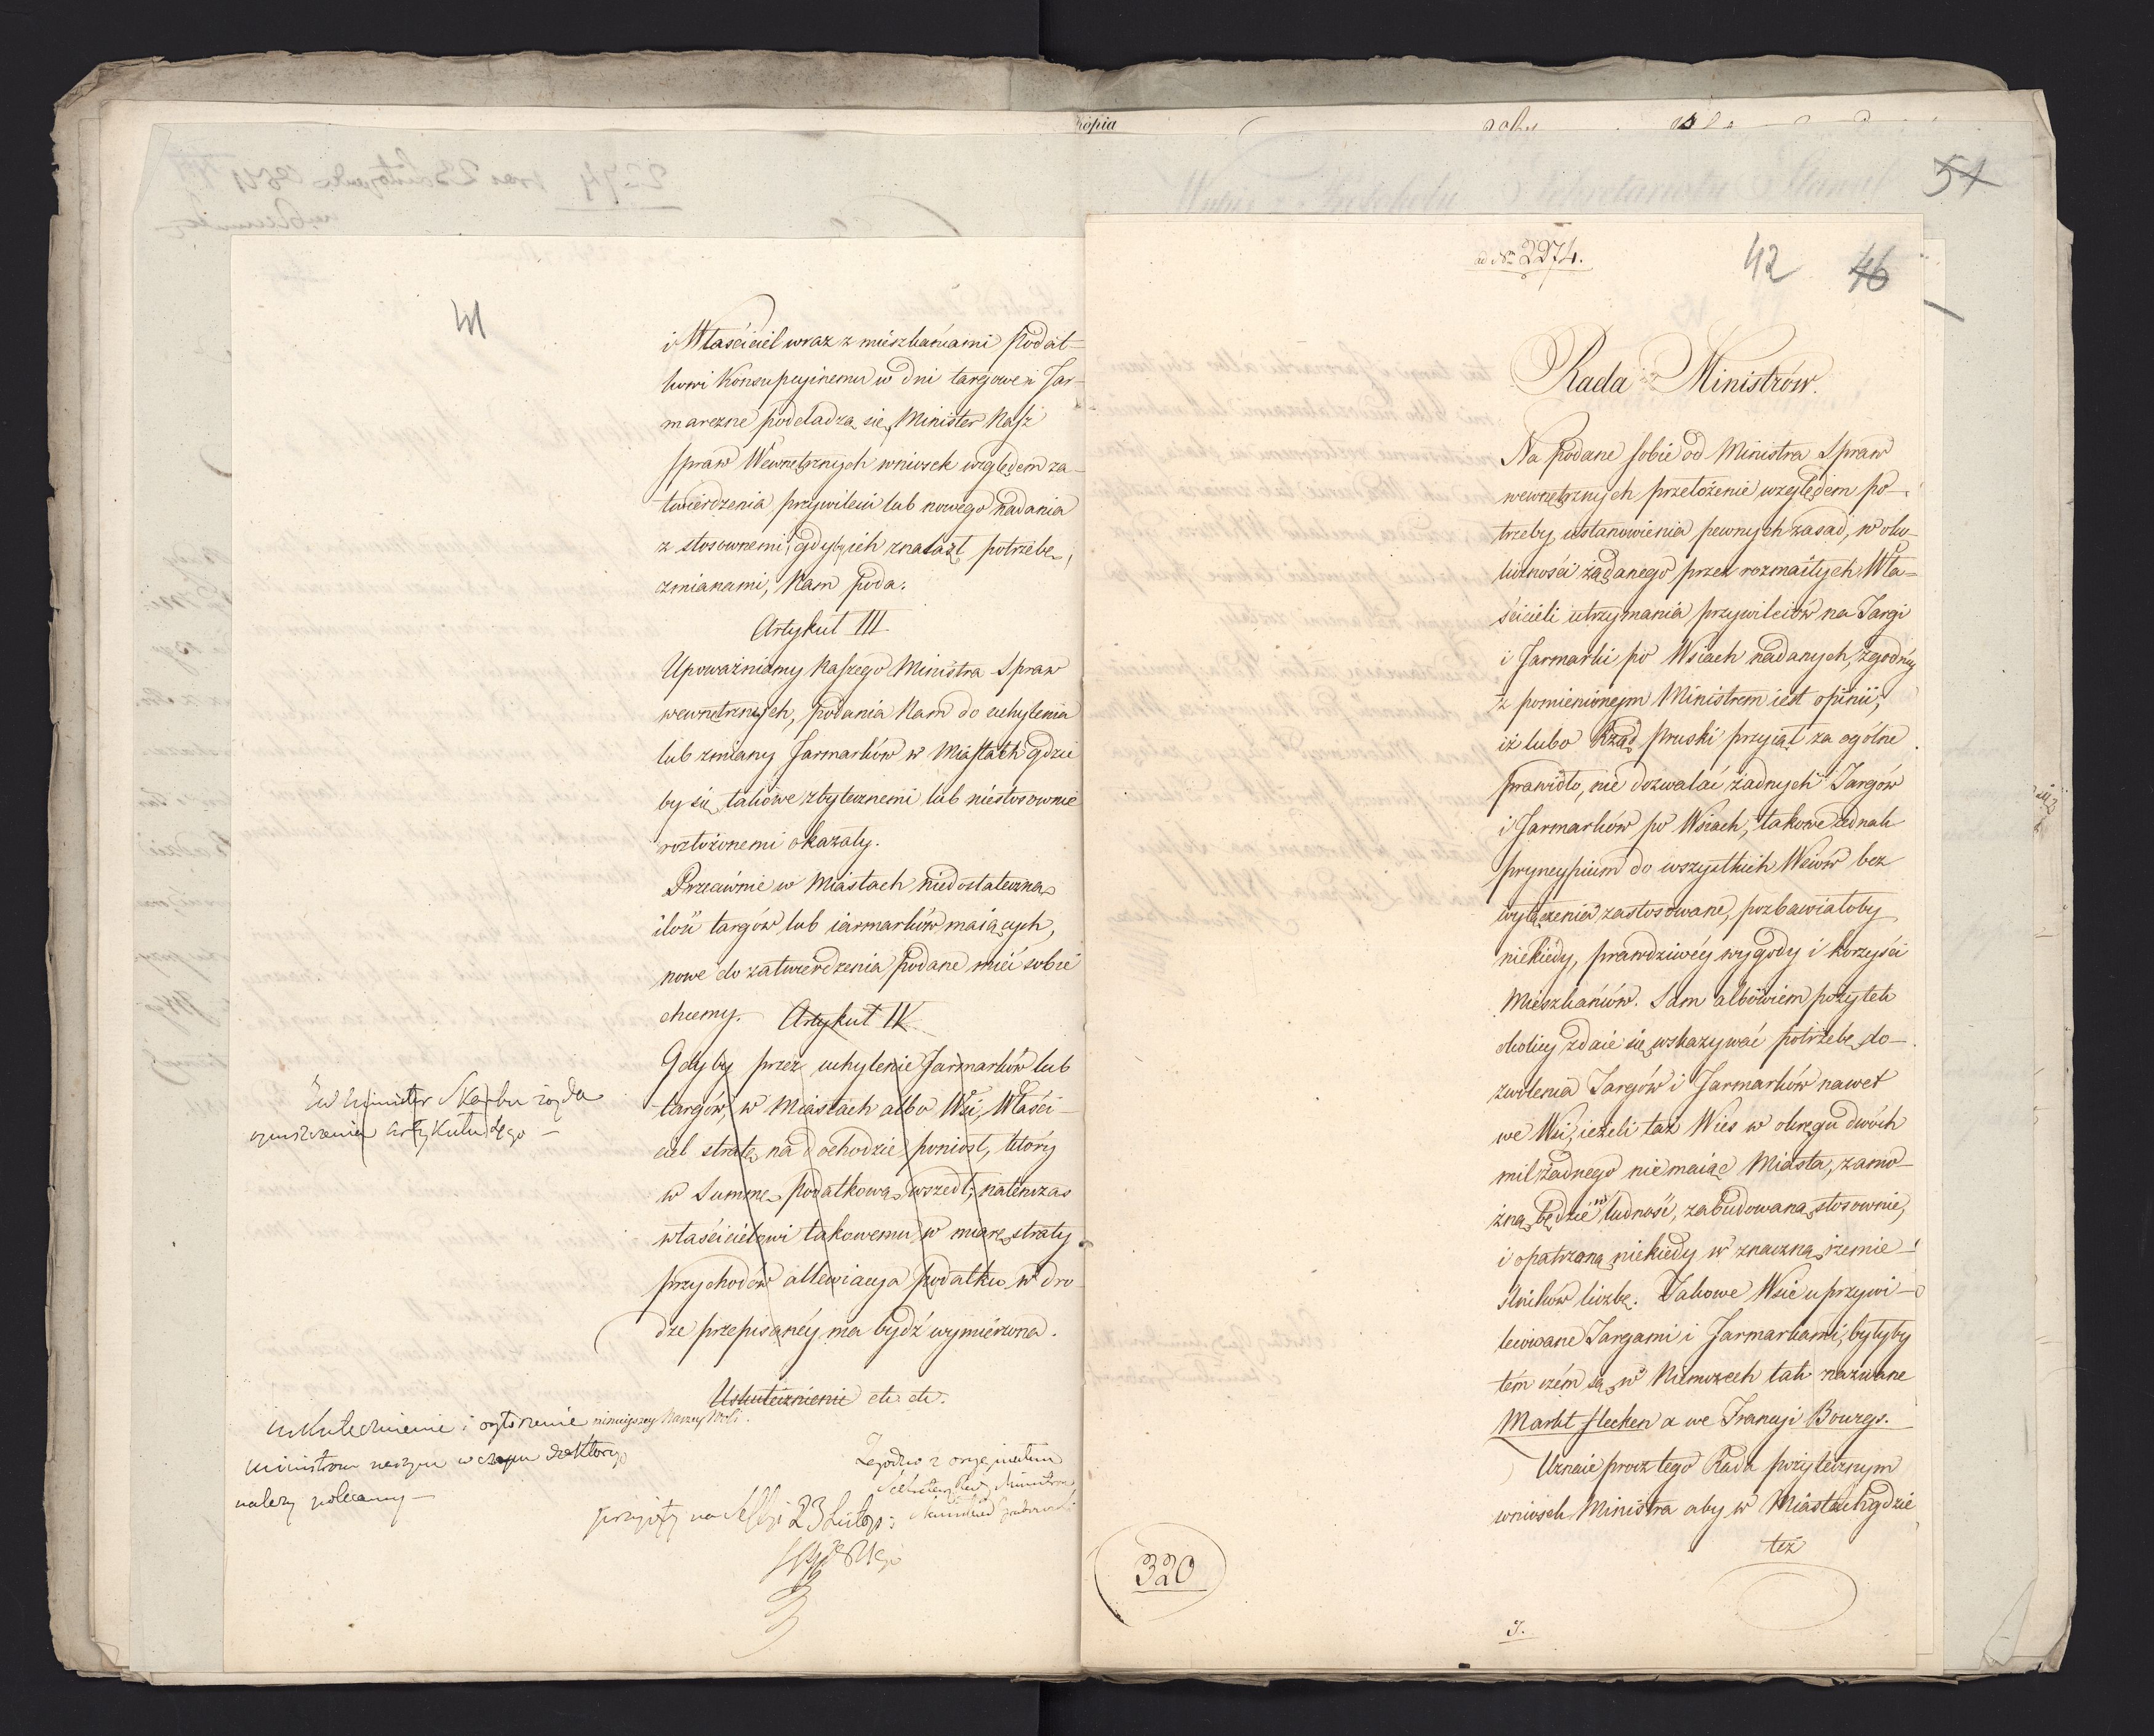 41
i Właściciel wraz z mieszkańcami Podat-
kowi Konsupcyinemu w dni targowe i Jar-
mareczne poddadzą się, Minister Nasz
Spraw Wewnętrznych wniosek względem za-
twierdzenia przywileiu lub nowego nadania
z stosownemi, gdyby ich znalazł potrzebę,
zmianami, Nam poda.
Artykuł III
Upoważniamy Naszego Ministra Spraw
wewnętrznych, podania Nam do uchylenia
lub zmiany Jarmarków w Miastach gdzie
by się takowe zbytecznemi lub niestosownie
rozłożonemi okazały.
Przeciwnie w Miastach niedostateczną
ilość targów lub iarmarków maiących,
nowe do zatwierdzenia podane mieć sobie
chcemy. Artykuł IV
Gdyby przez uchylenie Jarmarków lub
targów, w Miastach albo Wsi, Właści-
ciel stratę na dochodzie poniosł, który
w Summę podatkową wszedł, natenczas
właścicielowi takowemu w miarę straty
przychodów allewiacya podatku w dro-
dze przepisanéy ma bydź wymierzona.
JW Minister Skarbu żąda
opuszczenia Artykułu 4go
Uskutecznienie etc. etc.
uskutecznienie i ogłoszenie ninieyszey Naszey Woli
Ministrom naszym w czem do Którego
należy polecamy
Zgodno z oryginałem
Sekretarz Rady Ministrów
przyięty na Sessyi 23 Listop:
Kopia
51
ad Nrm 2274.
42 46
Rada Ministrów.
Na podane sobie od Ministra Spraw
wewnętrznych przełożenie względem po-
trzeby ustanowienia pewnych zasad, w oko-
liczności żądanego przez rozmaitych Wła-
ścicieli utrzymania przywileiów na Targi
i Jarmarki po Wsiach nadanych, zgodnéy
z pomienionym Ministrem iest opinii,
iż lubo Rząd Pruski przyiął za ogólne
prawidło, nie dozwalać żadnych Targów
i Jarmarków po Wsiach, takowe iednak
pryncypium do wszystkich Wsiów bez
wyłączenia zastosowane, pozbawiałoby
niekiedy, prawdziwéy wygody i korzyści
Mieszkańców. Sam albowiem pożytek
okolicy zdaie się wskazywać potrzebę do-
zwolenia Targów i Jarmarków nawet
we Wsi, ieżeli taż Wieś w okręgu dwóch
mil żadnego nie maiąc Miasta, zamo-
żną będzie w ludność, zabudowaną stosownie,
i opatrzoną niekiedy w znaczną rzemie-
ślników liczbę. Takowe Wsie uprzywi-
leiowane Targami i Jarmarkami, byłyby
tém czém są w Niemczech tak nazwane
Markt flecken a we Francyi Bourgs.
Uznaie procz tego Rada pożytecznym
wniosek Ministra aby w Miastach gdzie
też
320
J.